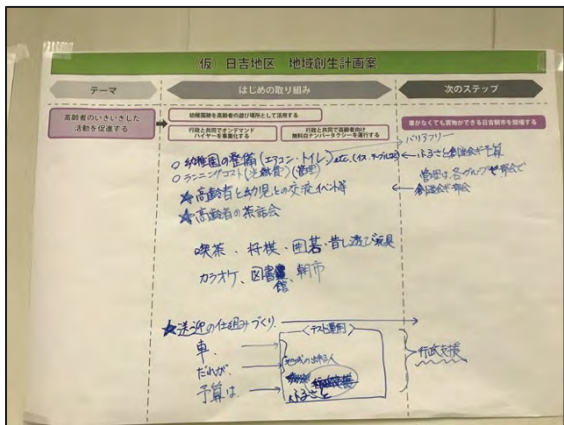 仮）日吉地区　地域創生計画案
テーマ
はじめの取り組み
次のステップ
高齢者のいきいきした
活動を促進する
幼稚園跡を高齢者の遊び場所として活用する
行政と共同でオンデマンド
ハイヤーを事業化する
行政と共同で高齢者向け
無料白ナンバータクシーを運行する
車がなくても買物ができる日吉朝市を開催する
バリアフリー
○幼稚園の整備（エアコン・トイレ）etc.
←ふるさと創造会が予算
○ランニングコスト（光熱費）（管理）
管理は、各グループや部会で
←創造会が
★高齢者と幼児との交流イベント等
★高齢者の茶話会
喫茶、将棋、囲碁、昔し遊び玩具
カラオケ、図書館、朝市
★送迎の仕組みづくり
〈テスト運用〉
車
だれが
地域の出来る人
予算は
ふるさと
行政支援